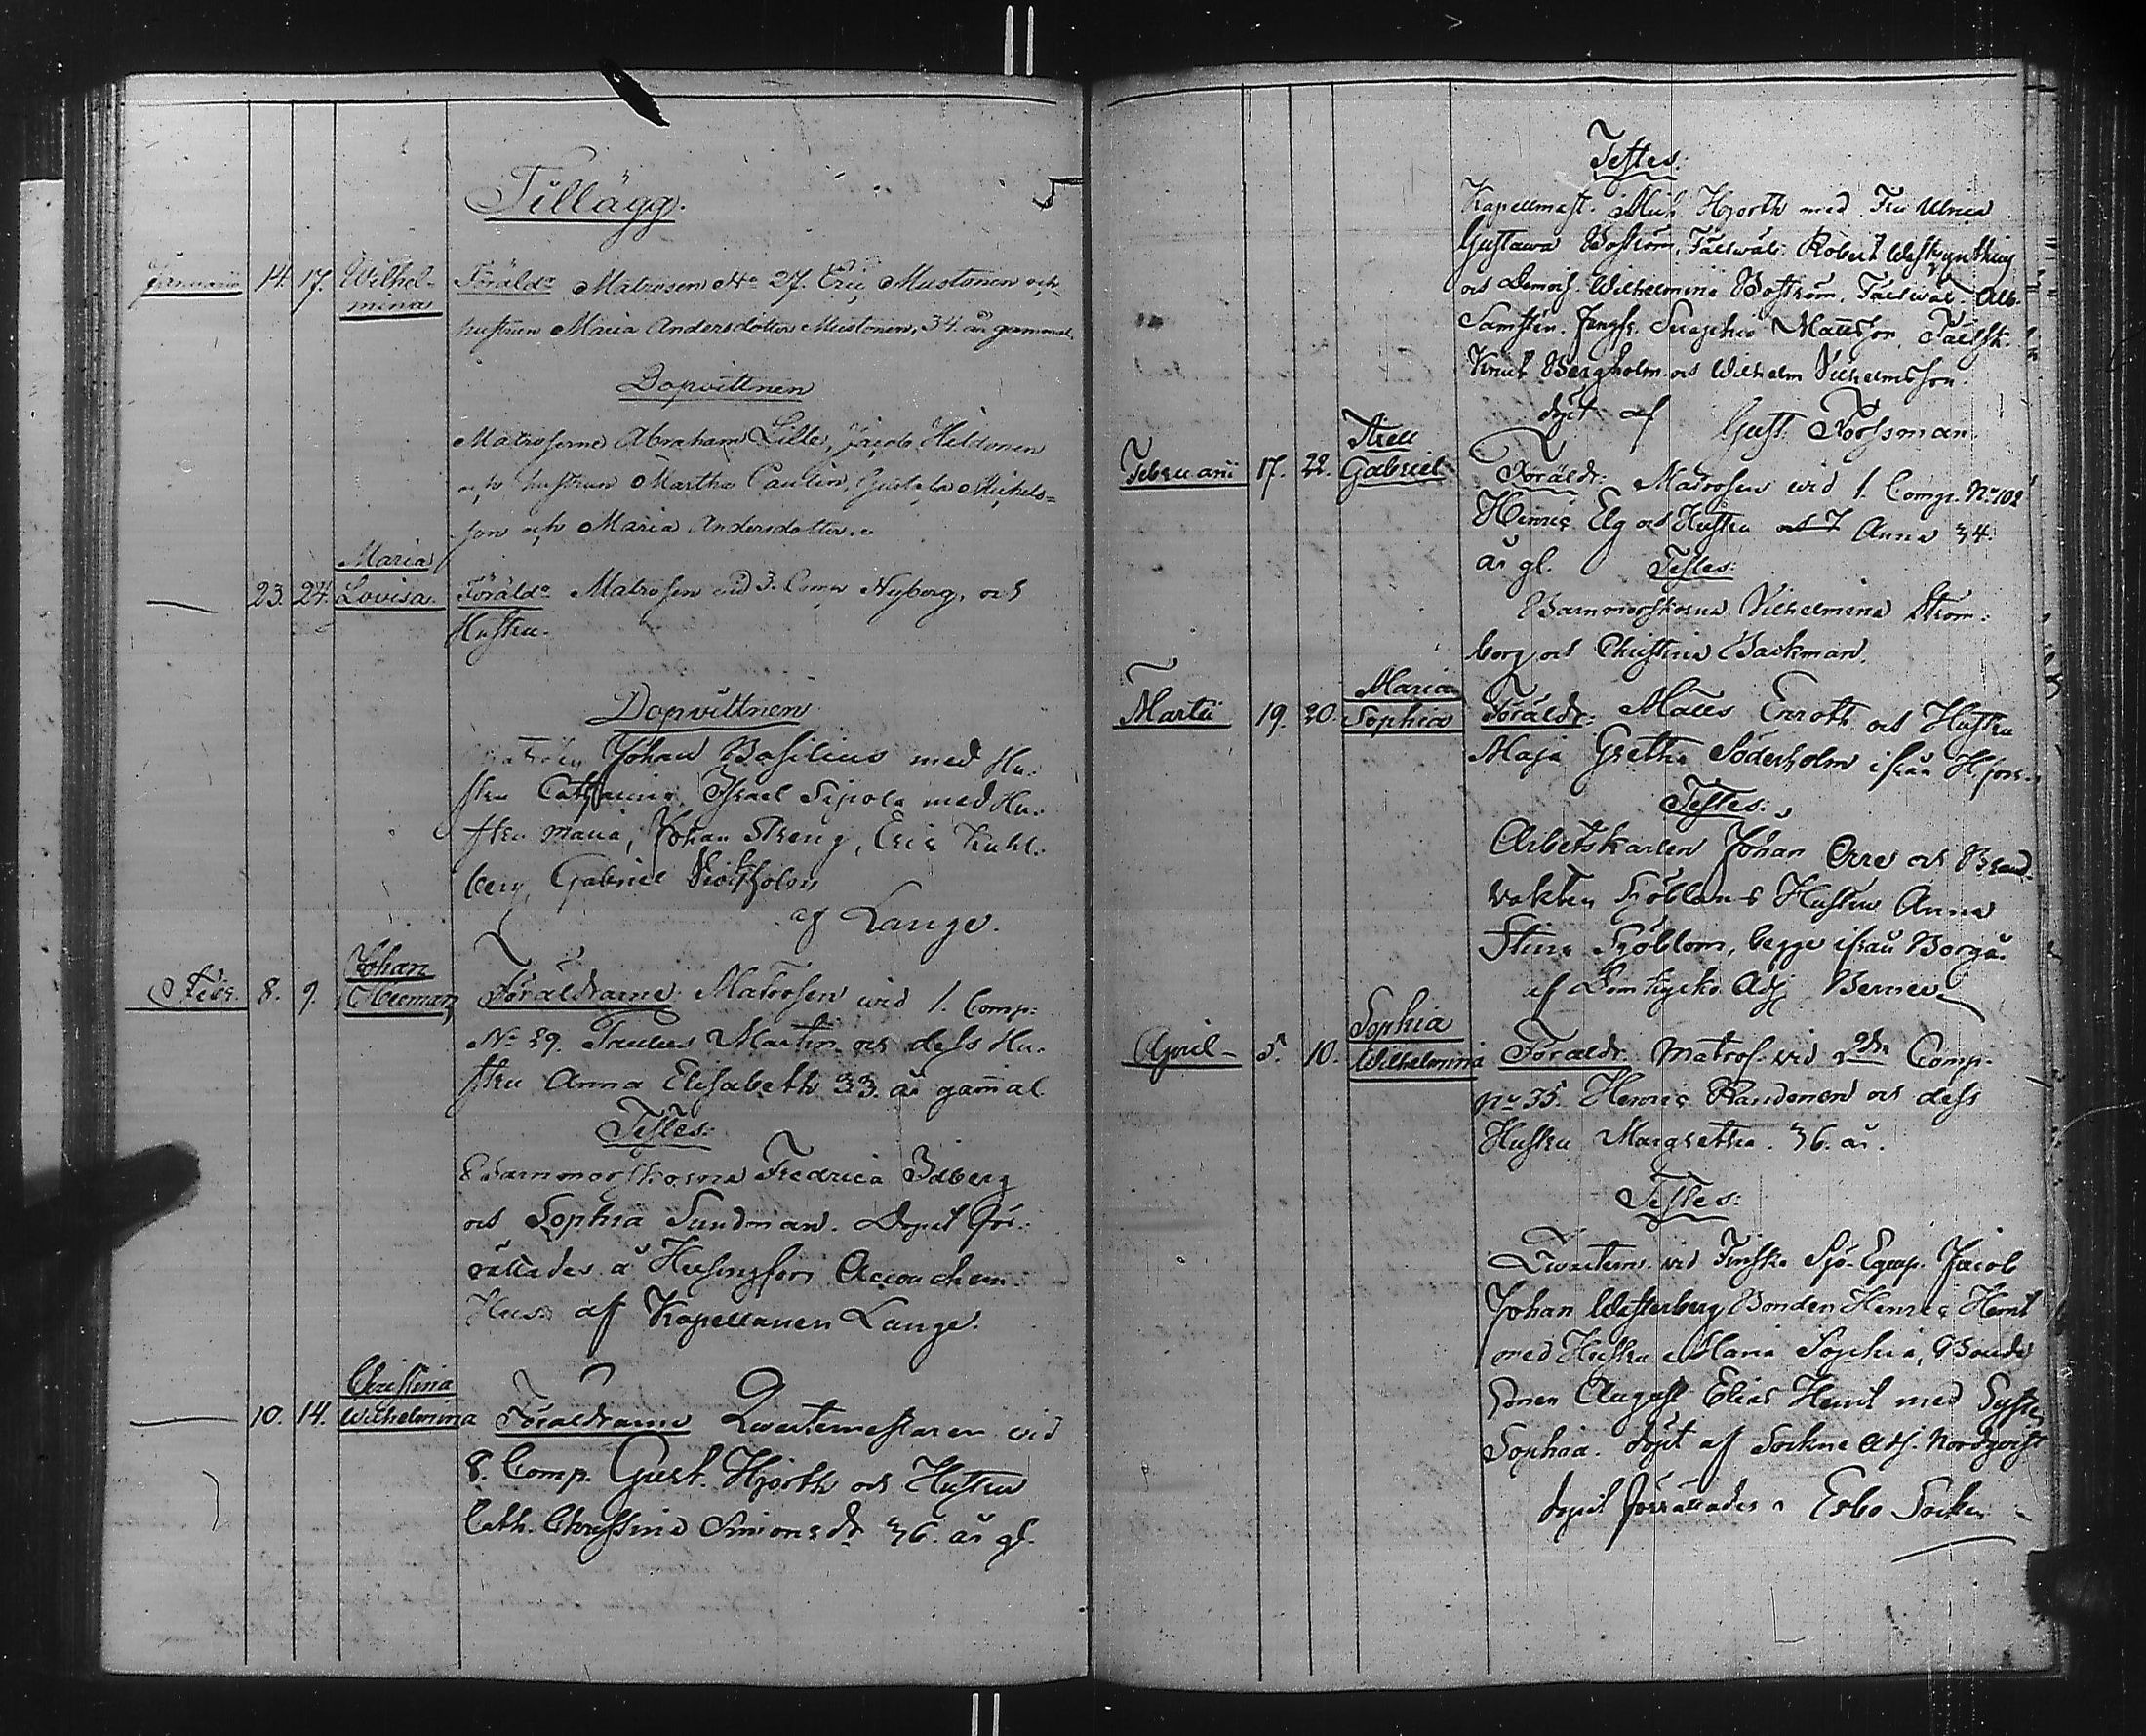 Tillägg.
Januarii 14. 17. Wilhel-
mina
Föräldr Matrosen No 27. Eric Mustonen och
hustrun Maria Andersdotter Mustonen, 34. år gammal.
Dopvittnen
Matroserne Abraham Lille, Jacob
och hustrun Martha Caulin, Gustaf Michels=
son och Maria Andersdotter.
Maria
23. 24. Lovisa
Föräldr Matrosen vid 3. Comp Nyborg, och
Hustru.
Dopvittnen
Johan Basilius med Hu-
stru Catharina, Israel Sipola med Hu-
stru Maria, Johan Streng, Eric
berg, Gabriel
af Lange.
Johan
Febr. 8. 9. Herman
Föräldrarne Matrosen wid 1. Comp:
No 29. Paulus Martin och dess Hu-
stru Anna Elisabeth 33. år gammal
Testes:
Barnmorskorna Fredrica Idberg
och Sophia Sundman. Dopet för-
rättades å Helsingfors Accouchem.
Hus af Kapellanen Lange.
Christina
10. 14. Wilhelmina
Föräldrarne Quartermestaren vid
8. Comp. Gust. Hjorth och Hustru
Cath. Christina Simonsdr 36. år gl.
Testes:
Kapellmest. Mich. Hjorth med Fru Ulrica
Gustawa Boström, Fältwäb. Robert
och Demois. Wilhelmina Boström, Fältwäb. Alb.
Mattsson,
Knut Bergholm och Wilhelm Wilhelmsson.
döpt af Gust. Forssman.
Axell
Februarii 17. 22. Gabriel
Föräldr: Matrosen vid 1. Comp. No 102
Henric Elg och Hustru Anna 34.
år gl. Testes:
Barnmorskorna Wilhelmina Ström-
berg och Christina Backman.
Maria
Martii 19. 20. Sophia
Föräldr: Matts Enroth och Hustru
Maja Gretha Söderholm ifrån H:fors.
Testes:
Arbetskarlen Johan Orre och Brand-
vakten Sjöbloms Hustru Anna
Stina Sjöblom, begge ifrån Borgå.
af Domkyrko Adj. Berner
Sophia
April 5. 10. Wilhelmina
Föräldr: Matros. vid 2dra Comp.
No 35. Henric Randonen och dess
Hustru Margretha. 36. år.
Testes:
vid Finska Sjö-Equip. Jacob
Johan Westerberg, Bonden Henric Hemt
med Hustru Maria Sophia, Bonde
Sonen August Elias Hemt med Syster
Sophia. döpt af Sockne Adj. Nordqvist
dopet förrättades i Esbo Socken